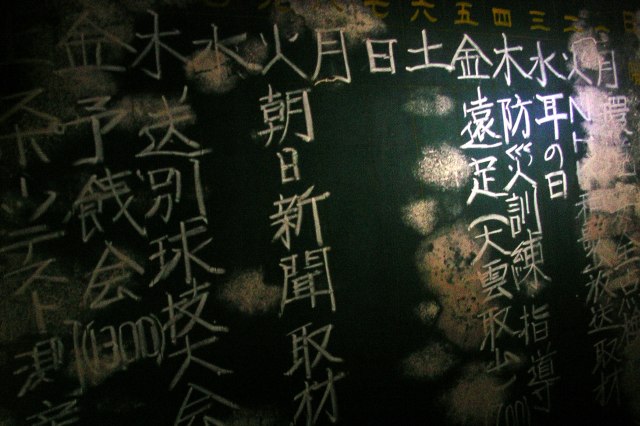 三 四 五 六 七
月 環
火 N 放送取材
水 耳の日
木 防災訓練 指導
金 遠足(大雲取山)
土
日
月
火 朝日新聞取材
水
木 送別球技大会
金 予餞会(1300)
スポーツテスト